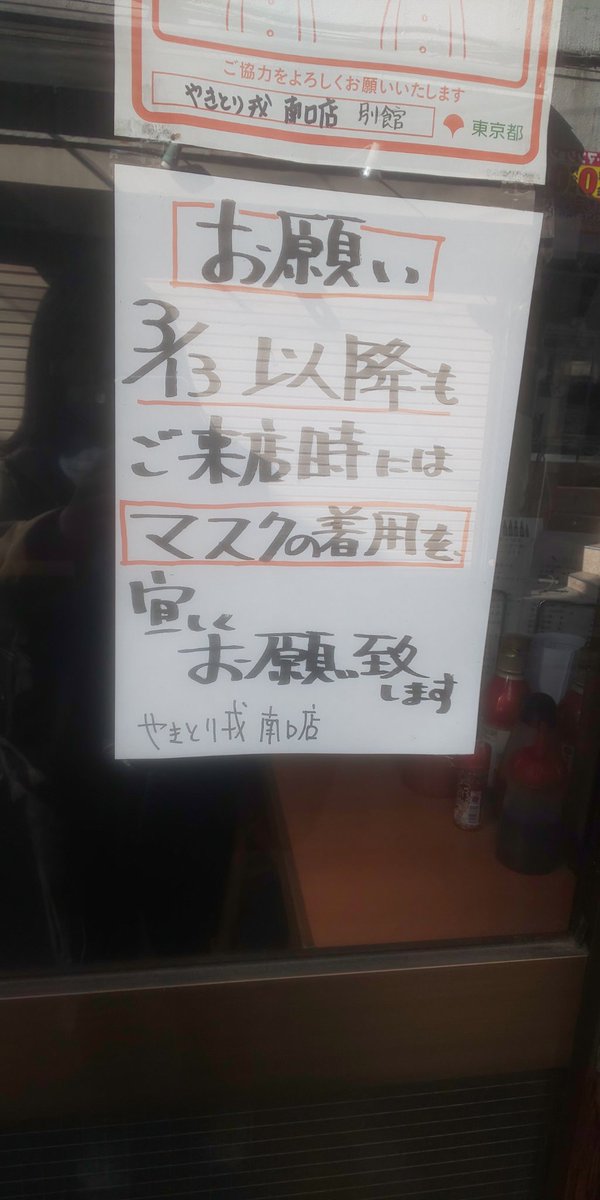 ご協力をよろしくお願いいたします
やきとり戎 南口店 別館
東京都
お願い
3/13 以降も
ご来店時には
マスクの着用を、
宜しく
お願い致
します
やきとり戎 南口店